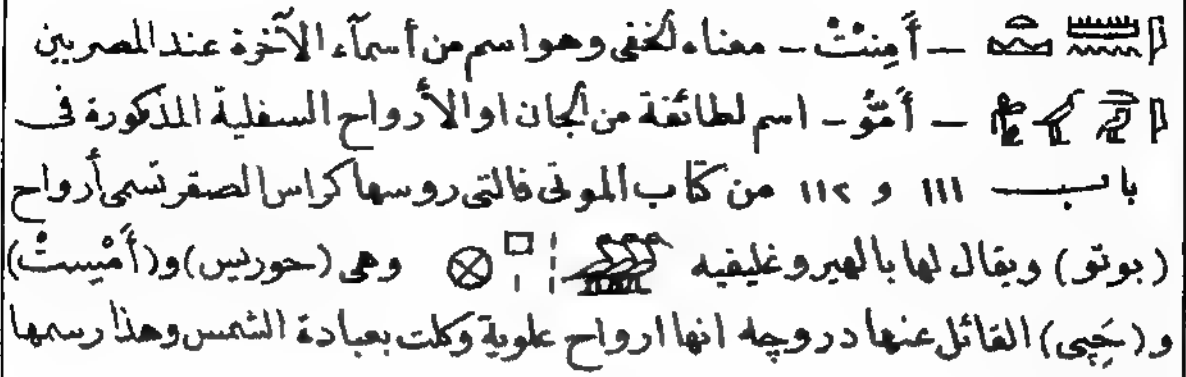 – أَمِنتْ – معناه الخفى وهو اسم من أسمآء الآخرة عند المصريين
– أَمْتُو – اسم لطائفة من الجان او الأرواح السفلية المذكورة فى
باب ١١١ و ١١٢ من كتاب الموتى فالتى روسها كراس الصقر تسمى أرواح
(بوتو) ويقال لها بالهيروغليفيه وهى (حوريس) و(أَمْيِستْ)
و(حَپِى) القائل عنها دروچه انها ارواح علوية وكلت بعبادة الشمس وهذا رسمها